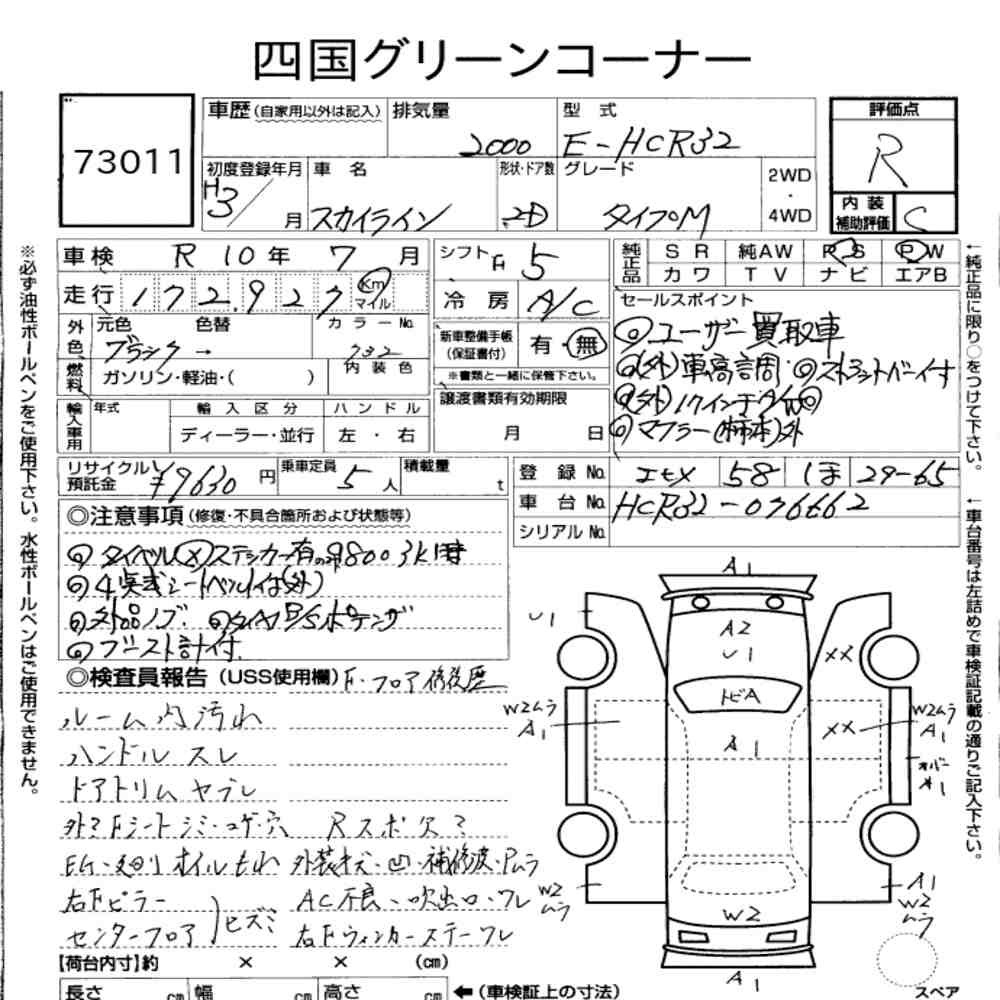 四国グリーンコーナー
73011
車歴(自家用以外は記入)
排気量 2000
型 式 E-HCR32
評価点 R
初度登録年月 H3/ 月
車 名 スカイライン
形状・ドア数 2D
グレード タイプM
2WD
・
4WD
内 装
補助評価 C
車検 R 10 年 7 月
シフト F 5
純正品 SR 純AW PS PW
カワ TV ナビ エアB
走行 172,927 Km
マイル
冷 房 A/C
セールスポイント
外色 元色 色替 カラーNo.
ブラック → 732
内装色
新車整備手帳
(保証書付) 有・無
※書類と一緒に保管下さい。
◎ユーザー買取車
◎(外)車高調・◎ストラットバー付
◎(外)17インチAW◎
◎マフラー(柿本)外
燃料 ガソリン・軽油・( )
輸入車用 年式 輸入区分 ハンドル
ディーラー・並行 左・右
譲渡書類有効期限
月 日
リサイクル
預託金 ¥9630 円
乗車定員 5 人
積載量 t
登録No. 58 1ほ 29-65
車台No. HCR32-076662
シリアルNo.
◎注意事項(修復・不具合箇所および状態等)
◎タイベル(×)ステッカー有
◎4点式シートベルト付(外)
◎外品ノブ.
◎ブースト計付.
◎検査員報告(USS使用欄)F.フロア修復歴
ルーム内汚れ
ハンドル スレ
ドアトリム ヤブレ
シート シミ・コゲ・穴 Rスポ欠ミ
EG・廻り オイルもれ 外装キズ・凹・補修波・Pムラ
右Fピラー
センターフロア ヒズミ
AC不良・吹出口・フレ
右Fウィンカーステーフレ
【荷台内寸】約 × × (cm)
長さ cm 幅 cm 高さ cm ←(車検証上の寸法)
※必ず油性ボールペンをご使用下さい。水性ボールペンはご使用できません。
←純正品に限り○をつけて下さい。
←車台番号は左詰めで車検証記載の通りご記入下さい。
A1
U1
A2
U1
XX
トビA
W2ムラ
A1
A1
XX
W2ムラ
A1
オーバー
*1
W2
ムラ
W2
A1
W2
ムラ
A1
スペア